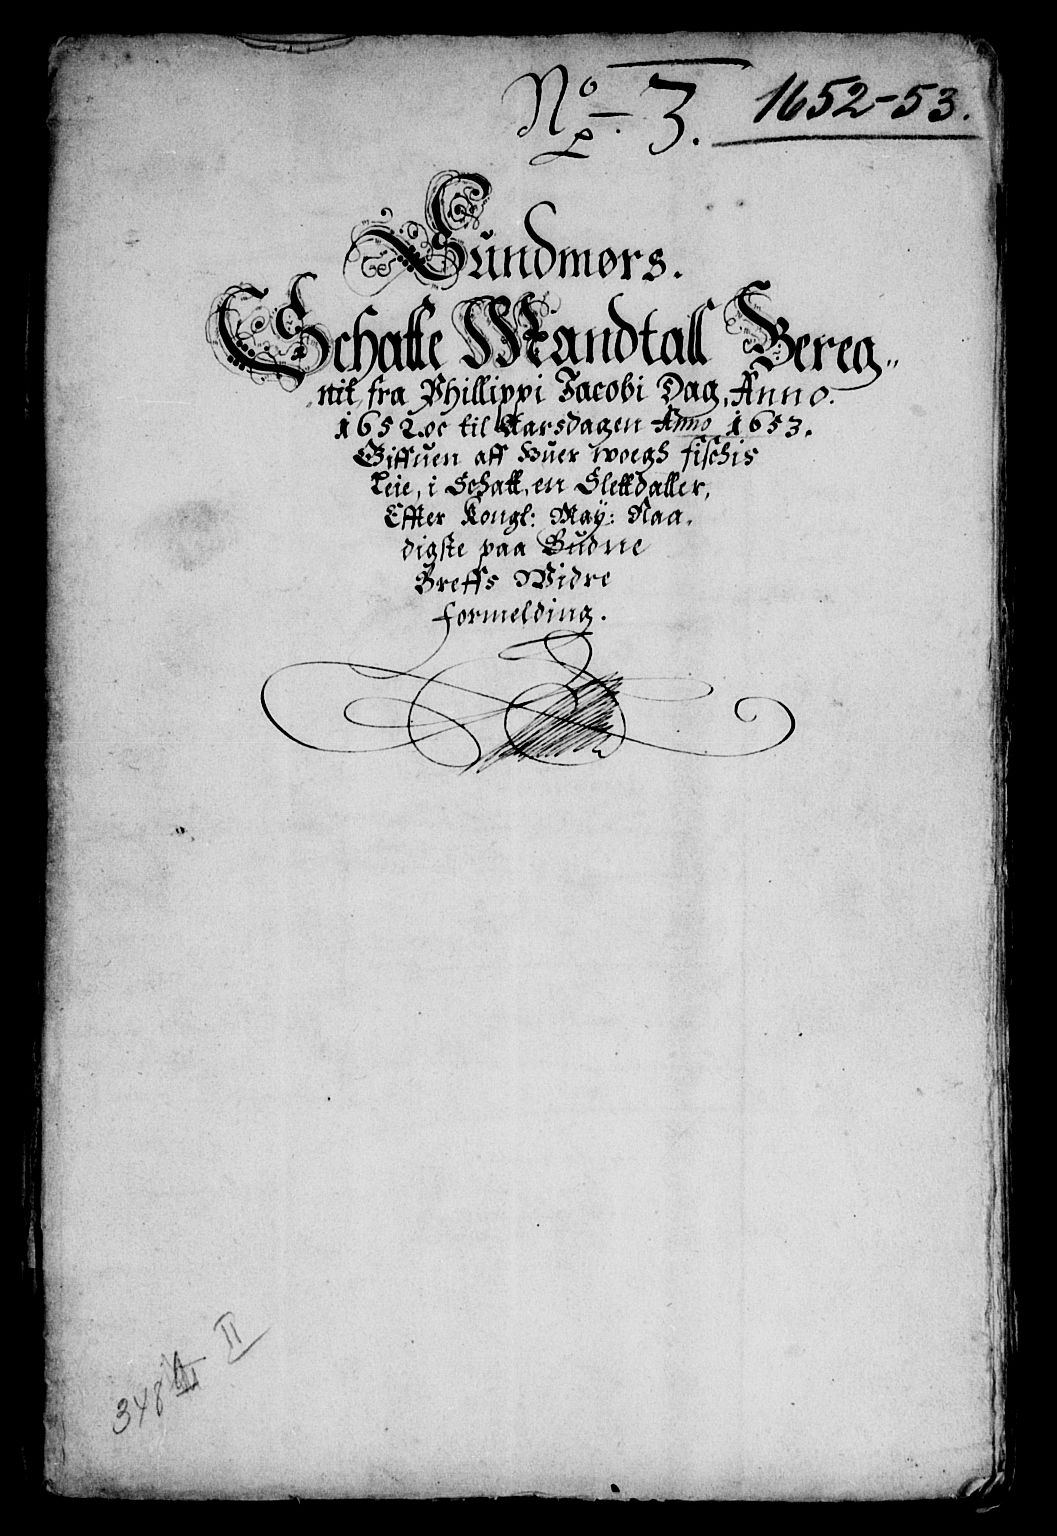 No. 3. 1652-53.
Sundmørs.
Schatte Mandtall Bereg„
nit fra Phillippi Jacobi Dag, Anno.
1652. oc til Aarsdagen Anno 1653.
Giffuen aff huer woegh fischis
Leie, i Schatt, en Slettdaller,
Effter Kongl: May: Naa.
digste paa Budne
Breffs Widre
formelding.
348 II